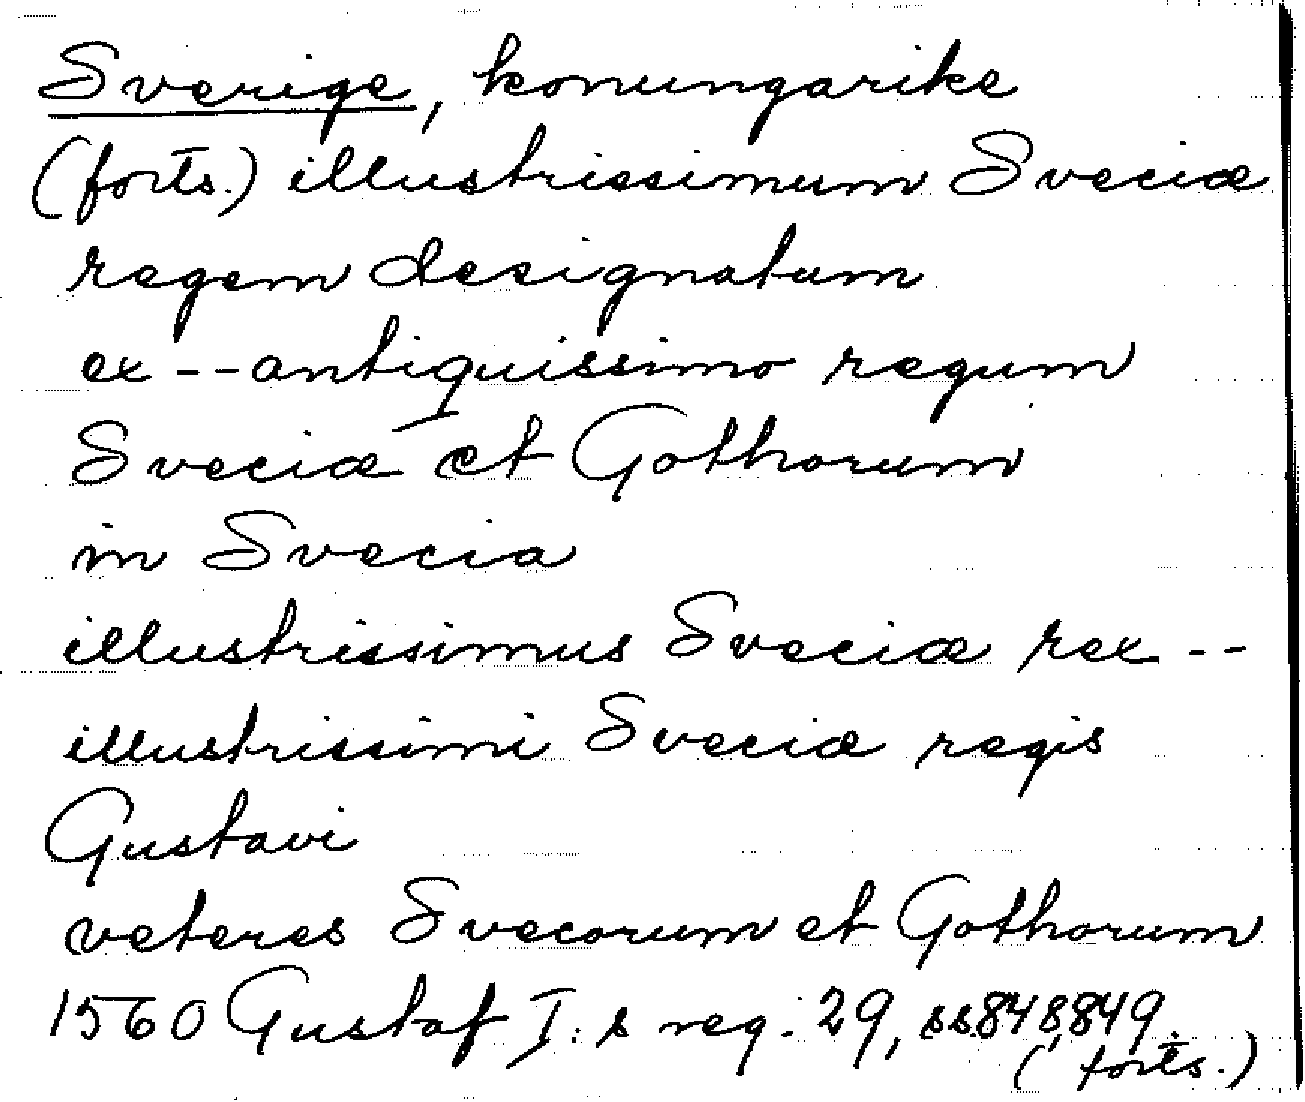 Sverige, konungarike
(forts.) illustrissimum Sveciæ
regem designatum
ex -- antiquissimo regum
Sveciæ et Gothorum
in Svecia
illustrissimus Sveciæ rex --
illustrissimi Sveciæ regis
Gustavi
veteres Svecorum et Gothorum
1560 Gustaf I:s reg. 29, ss 848, 849.
(forts.)